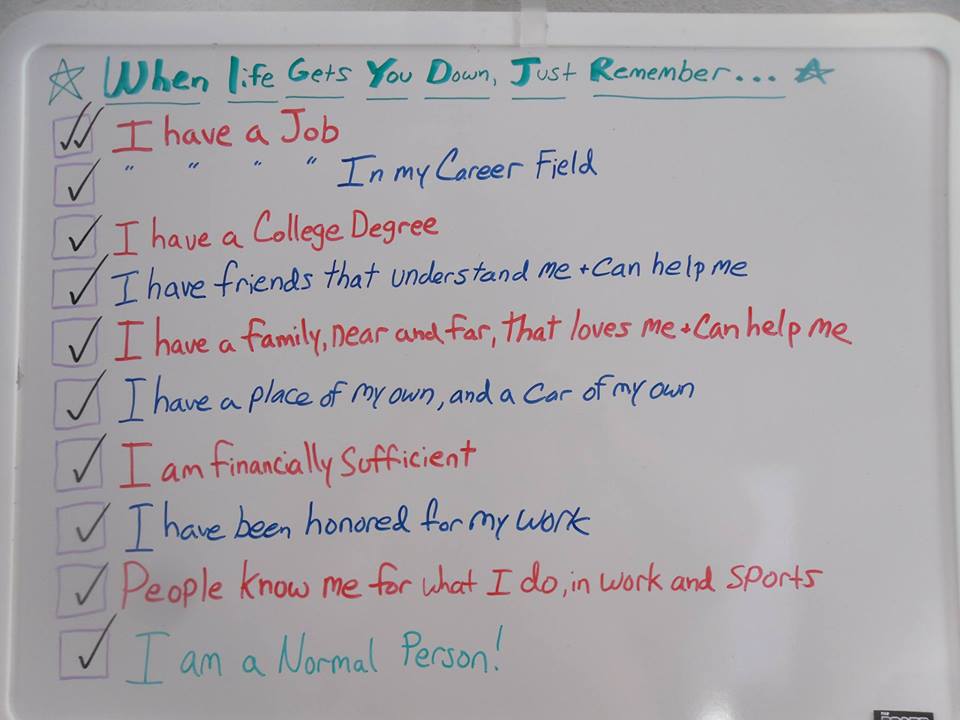 ☆ When life Gets You Down, Just Remember... ☆
✓✓ I have a Job
✓ " " " " In my Career Field
✓ I have a College Degree
✓ I have friends that understand me + Can help me
✓ I have a family, near and far, that loves me + Can help me
✓ I have a place of my own, and a car of my own
✓ I am financially Sufficient
✓ I have been honored for my work
✓ People know me for what I do, in work and sports
✓ I am a Normal Person!